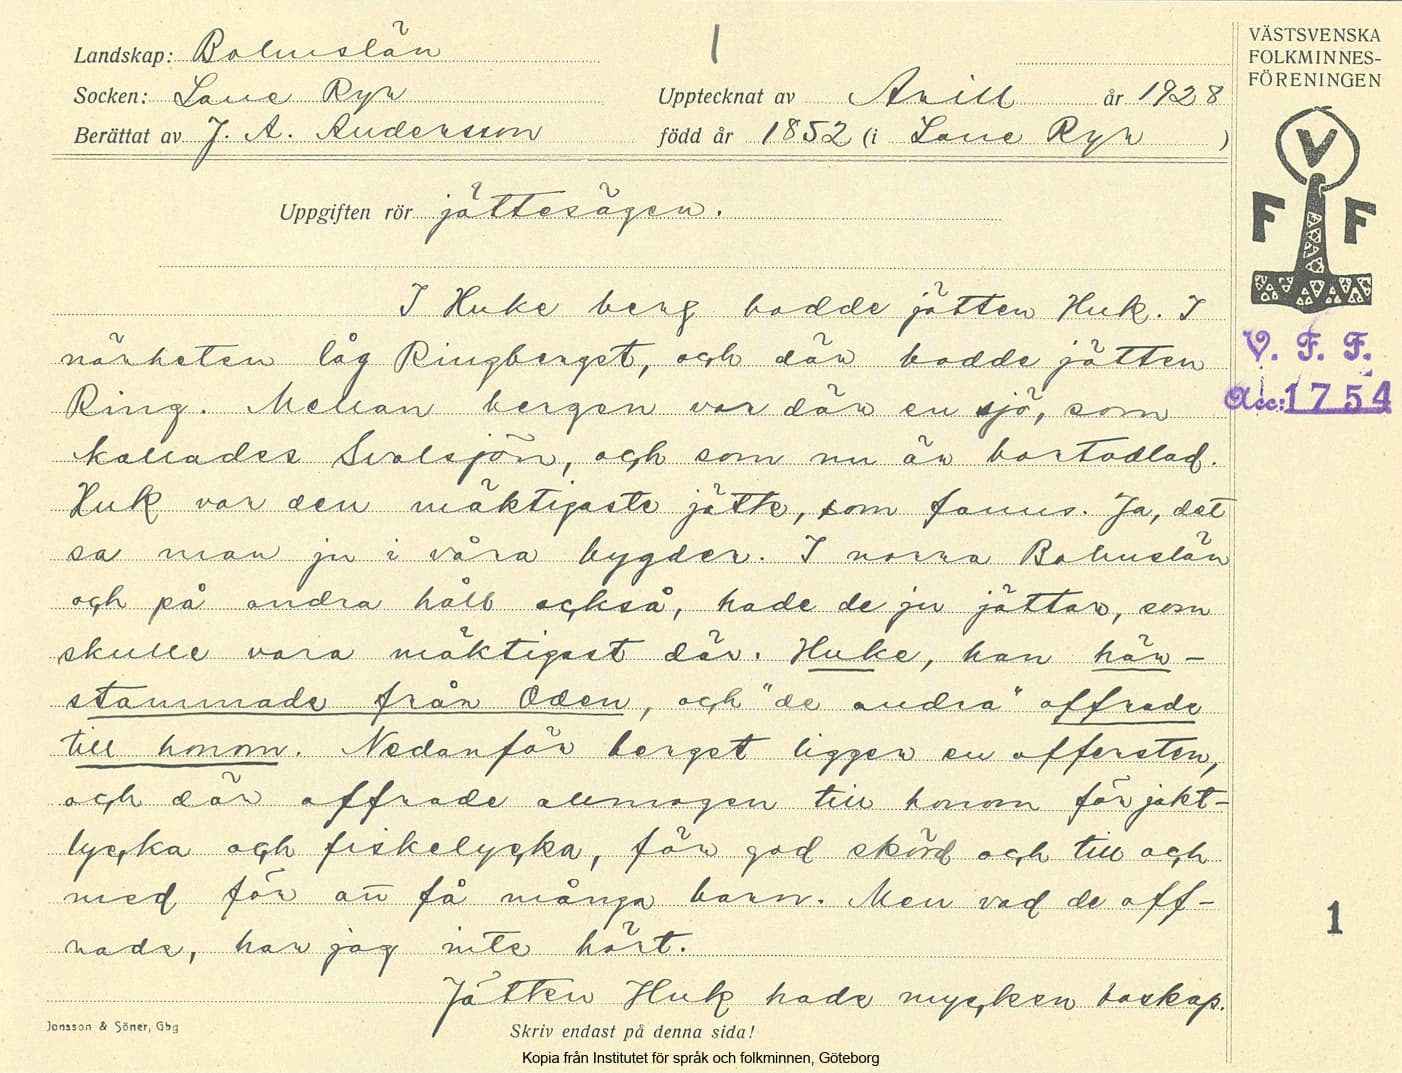 Landskap: Bohuslän
1
Socken: Lane Ryr
Upptecknat av Arill år 1928
Berättat av J. A. Andersson
född år 1852 (i Lane Ryr )
VÄSTSVENSKA
FOLKMINNES-
FÖRENINGEN
V
F F
V. F. F.
Acc: 1754
Uppgiften rör jättesägen.
I Huke berg bodde jätten Huk. I
närheten låg Ringberget, och där bodde jätten
Ring. Mellan bergen var där en sjö, som
kallades Svalsjön, och som nu är bortodlad.
Huk var den mäktigaste jätte, som fanns. Ja, det
sa man ju i våra bygder. I norra Bohuslän
och på andra håll också, hade de ju jättar, som
skulle vara mäktigast där. Huke, han här-
stammade från Oden, och "de andra" offrade
till honom. Nedanför berget ligger en offersten,
och där offrade allmogen till honom för jakt-
lycka och fiskelycka, för god skörd och till och
med för att få många barn. Men vad de off-
rade, har jag inte hört.
Jätten Huk hade mycken boskap.
1
Jonsson & Söner, Gbg
Skriv endast på denna sida!
Kopia från Institutet för språk och folkminnen, Göteborg